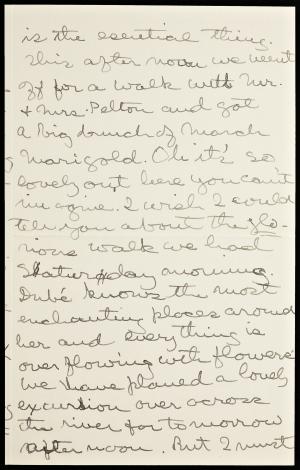 is the essential thing.
This after noon we went
off for a walk with Mr.
& Mrs. Pelton and got
a big bunch of Marsh
Marigold. Oh it's so
lovely out here you can't
imagine. I wish I could
tell you about the glo-
rious walk we had
Saturday morning.
Dubé knows the most
enchanting places around
her and everything is
overflowing with flowers
We have planed a lovely
excursion over across
the river for tomorrow
after noon. But I must